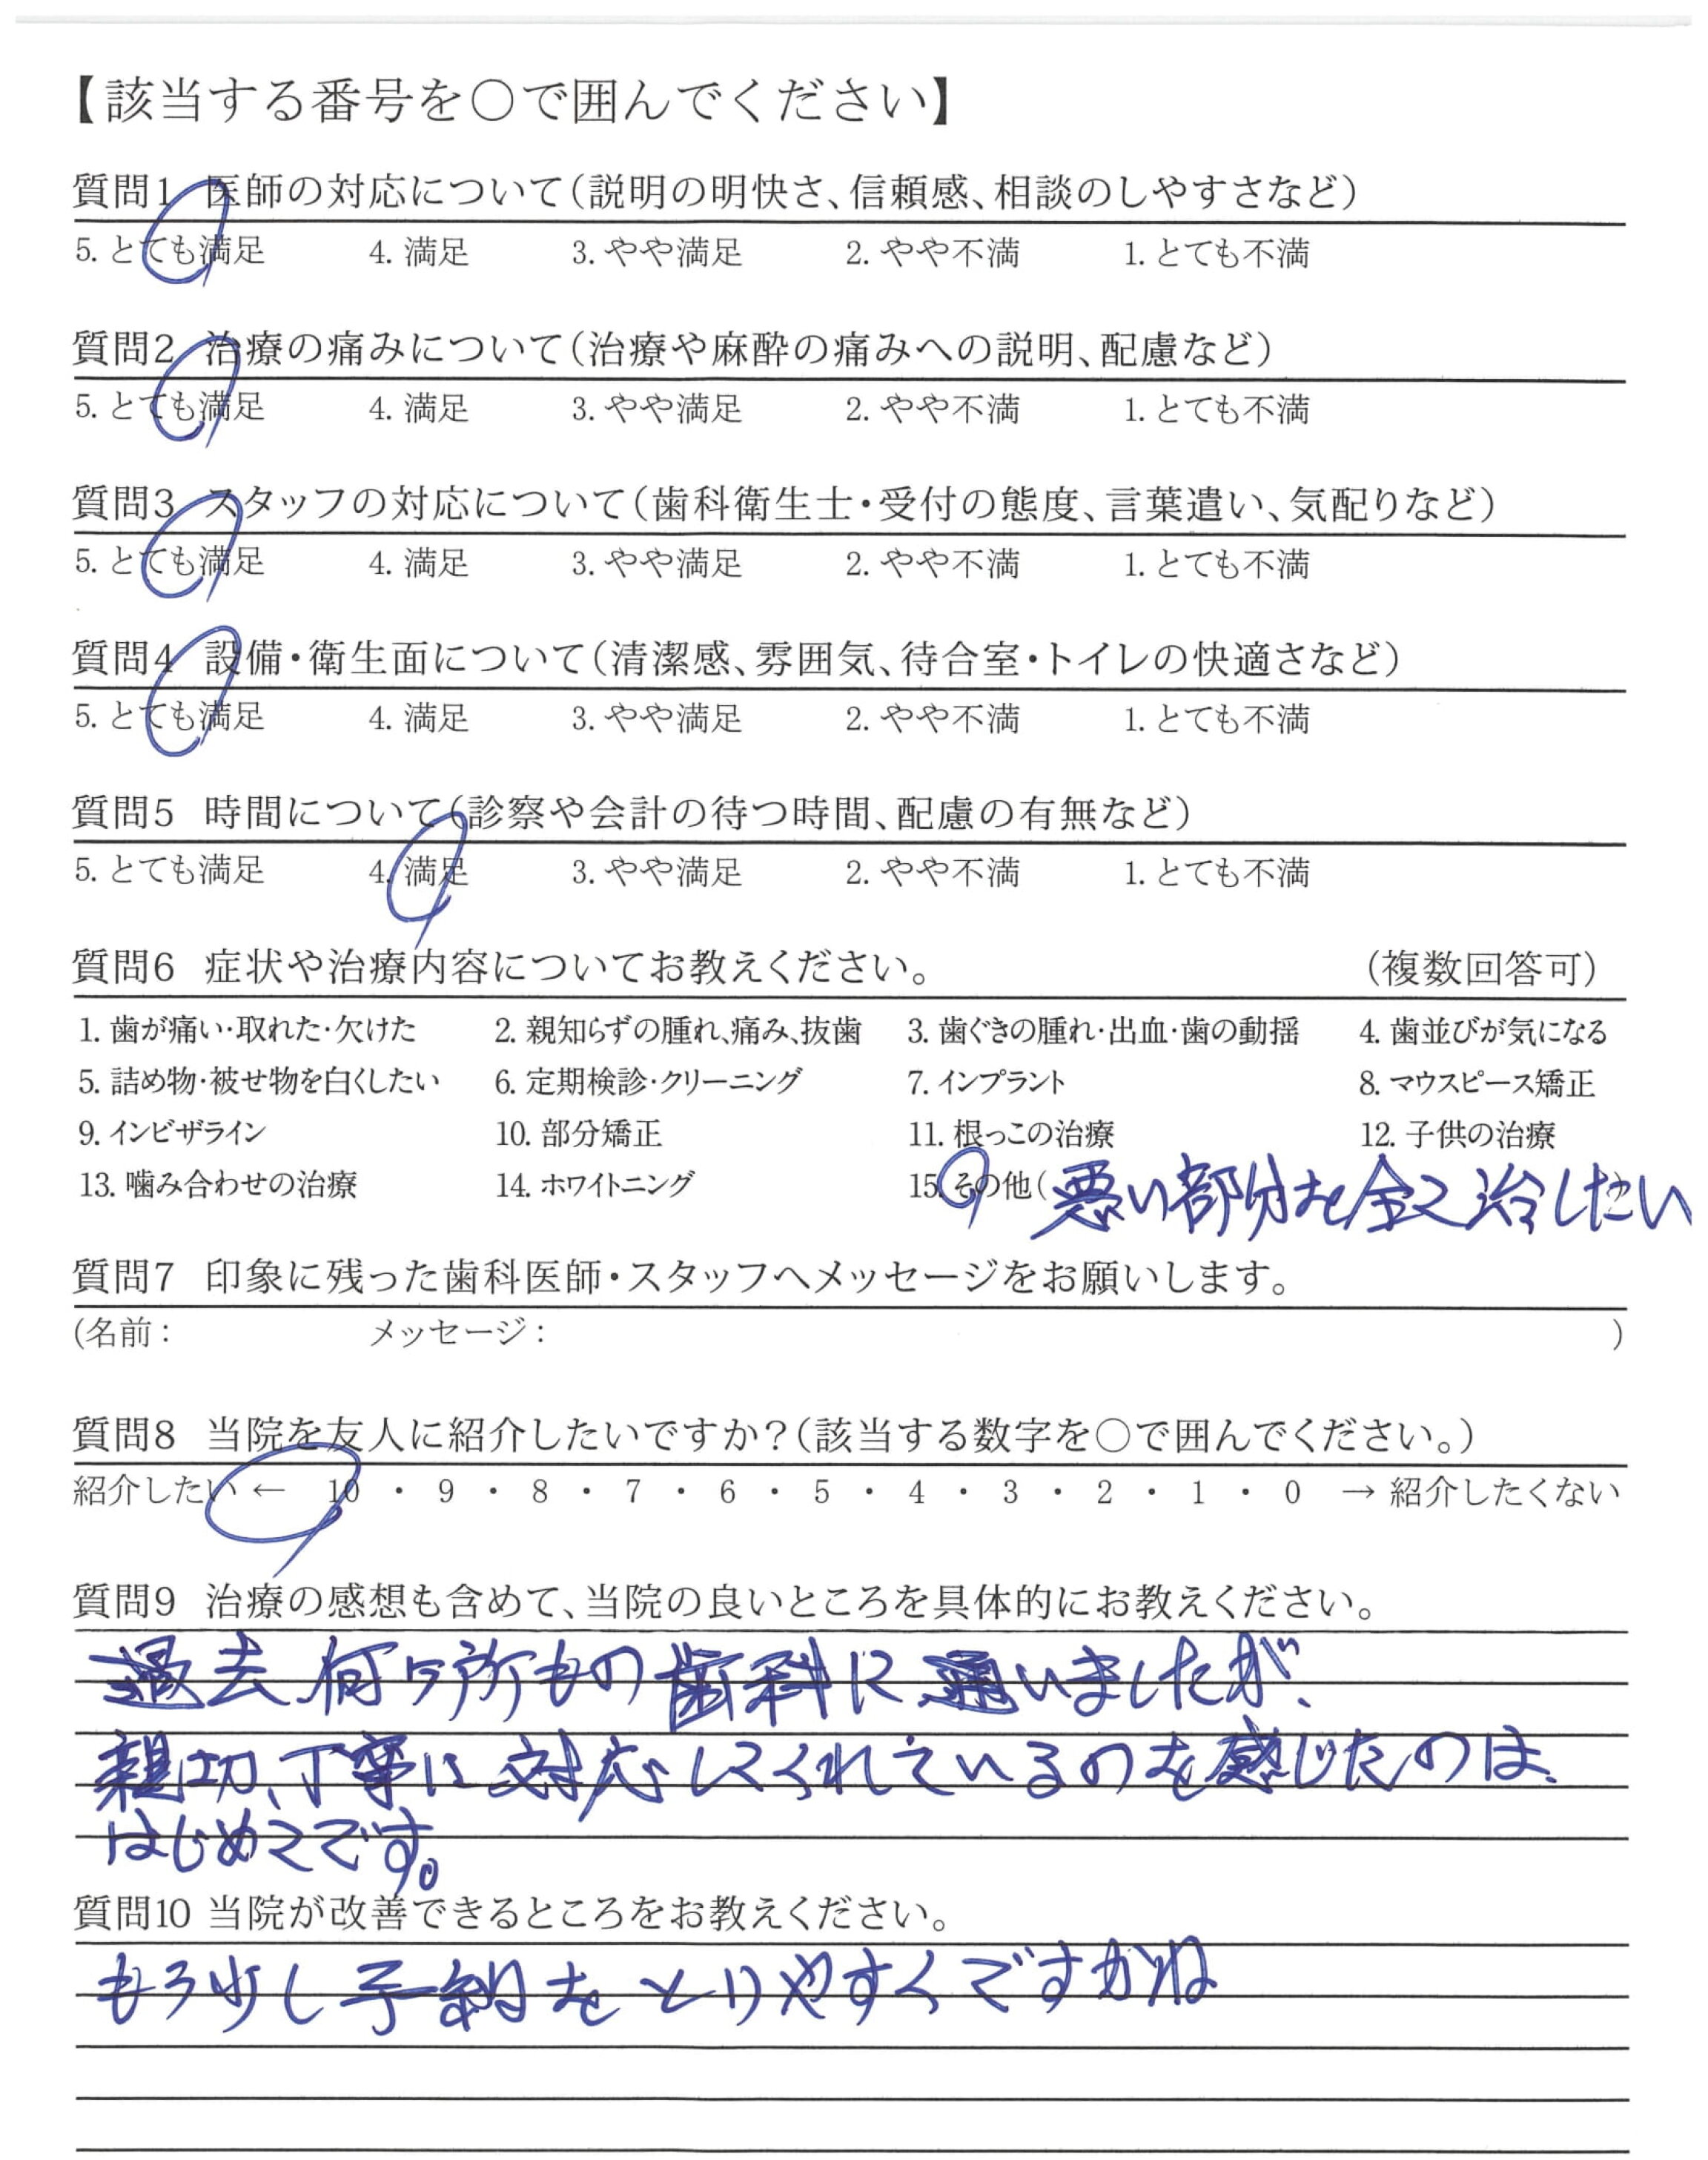 【該当する番号を〇で囲んでください】
質問1 医師の対応について(説明の明快さ、信頼感、相談のしやすさなど)
5. とても満足 4. 満足 3. やや満足 2. やや不満 1. とても不満
質問2 治療の痛みについて(治療や麻酔の痛みへの説明、配慮など)
5. とても満足 4. 満足 3. やや満足 2. やや不満 1. とても不満
質問3 スタッフの対応について(歯科衛生士・受付の態度、言葉遣い、気配りなど)
5. とても満足 4. 満足 3. やや満足 2. やや不満 1. とても不満
質問4 設備・衛生面について(清潔感、雰囲気、待合室・トイレの快適さなど)
5. とても満足 4. 満足 3. やや満足 2. やや不満 1. とても不満
質問5 時間について(診察や会計の待つ時間、配慮の有無など)
5. とても満足 4. 満足 3. やや満足 2. やや不満 1. とても不満
質問6 症状や治療内容についてお教えください。 (複数回答可)
1. 歯が痛い・取れた・欠けた 2. 親知らずの腫れ、痛み、抜歯 3. 歯ぐきの腫れ・出血・歯の動揺 4. 歯並びが気になる
5. 詰め物・被せ物を白くしたい 6. 定期検診・クリーニング 7. インプラント 8. マウスピース矯正
9. インビザライン 10. 部分矯正 11. 根っこの治療 12. 子供の治療
13. 噛み合わせの治療 14. ホワイトニング 15. その他( 悪い部分を全て治したい )
質問7 印象に残った歯科医師・スタッフへメッセージをお願いします。
(名前: メッセージ: )
質問8 当院を友人に紹介したいですか?(該当する数字を〇で囲んでください。)
紹介したい ← 10 ・ 9 ・ 8 ・ 7 ・ 6 ・ 5 ・ 4 ・ 3 ・ 2 ・ 1 ・ 0 → 紹介したくない
質問9 治療の感想も含めて、当院の良いところを具体的にお教えください。
過去、何ヶ所もの歯科に通いましたが、
親切、丁寧に対応してくれているのを感じたのは、
はじめてです。
質問10 当院が改善できるところをお教えください。
もう少し予約をとりやすくですかね